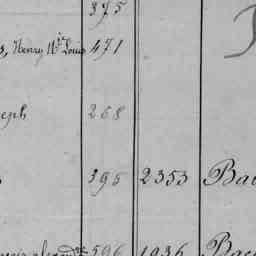 375
Henry Nle Louis 471
eph 268
395 2353 Bac
596 1936 Bac